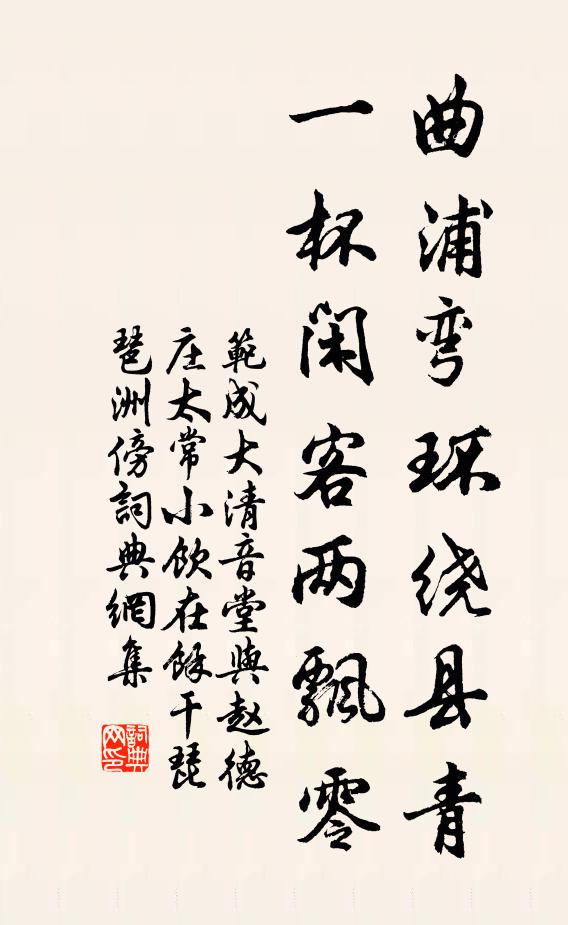 曲浦弯环绕县青
一杯闲客两飘零
範成大清音堂與赵德
庄太常小飲在餘干琵
琶洲傍詞典網集
詞典网印